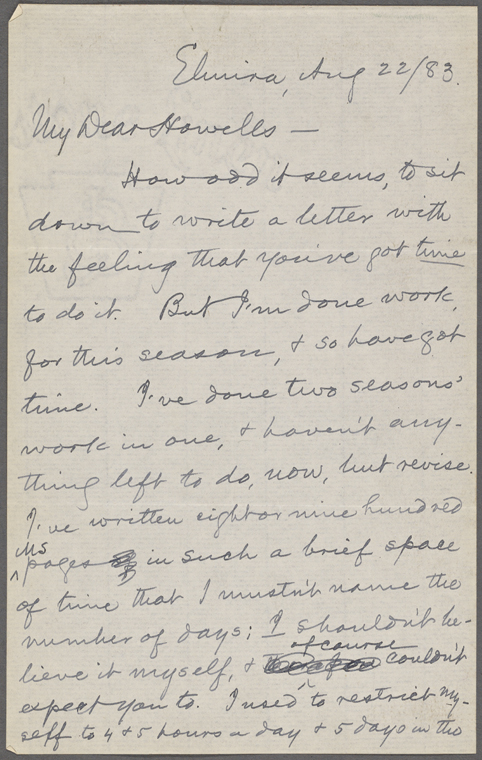 Elmira, Aug 22/83.
My Dear Howells —
How odd it seems, to sit
down to write a letter with
the feeling that you've got time
to do it. But I'm done work,
for this season, & so have got
time. I've done two seasons'
work in one, & haven't any-
thing left to do, now, but revise.
I've written eight or nine hundred
MS
pages in such a brief space
of time that I mustn't name the
number of days; I shouldn't be-
of course
lieve it myself, & couldn't
expect you to. I used to restrict my-
self to 4 & 5 hours a day & 5 days in the